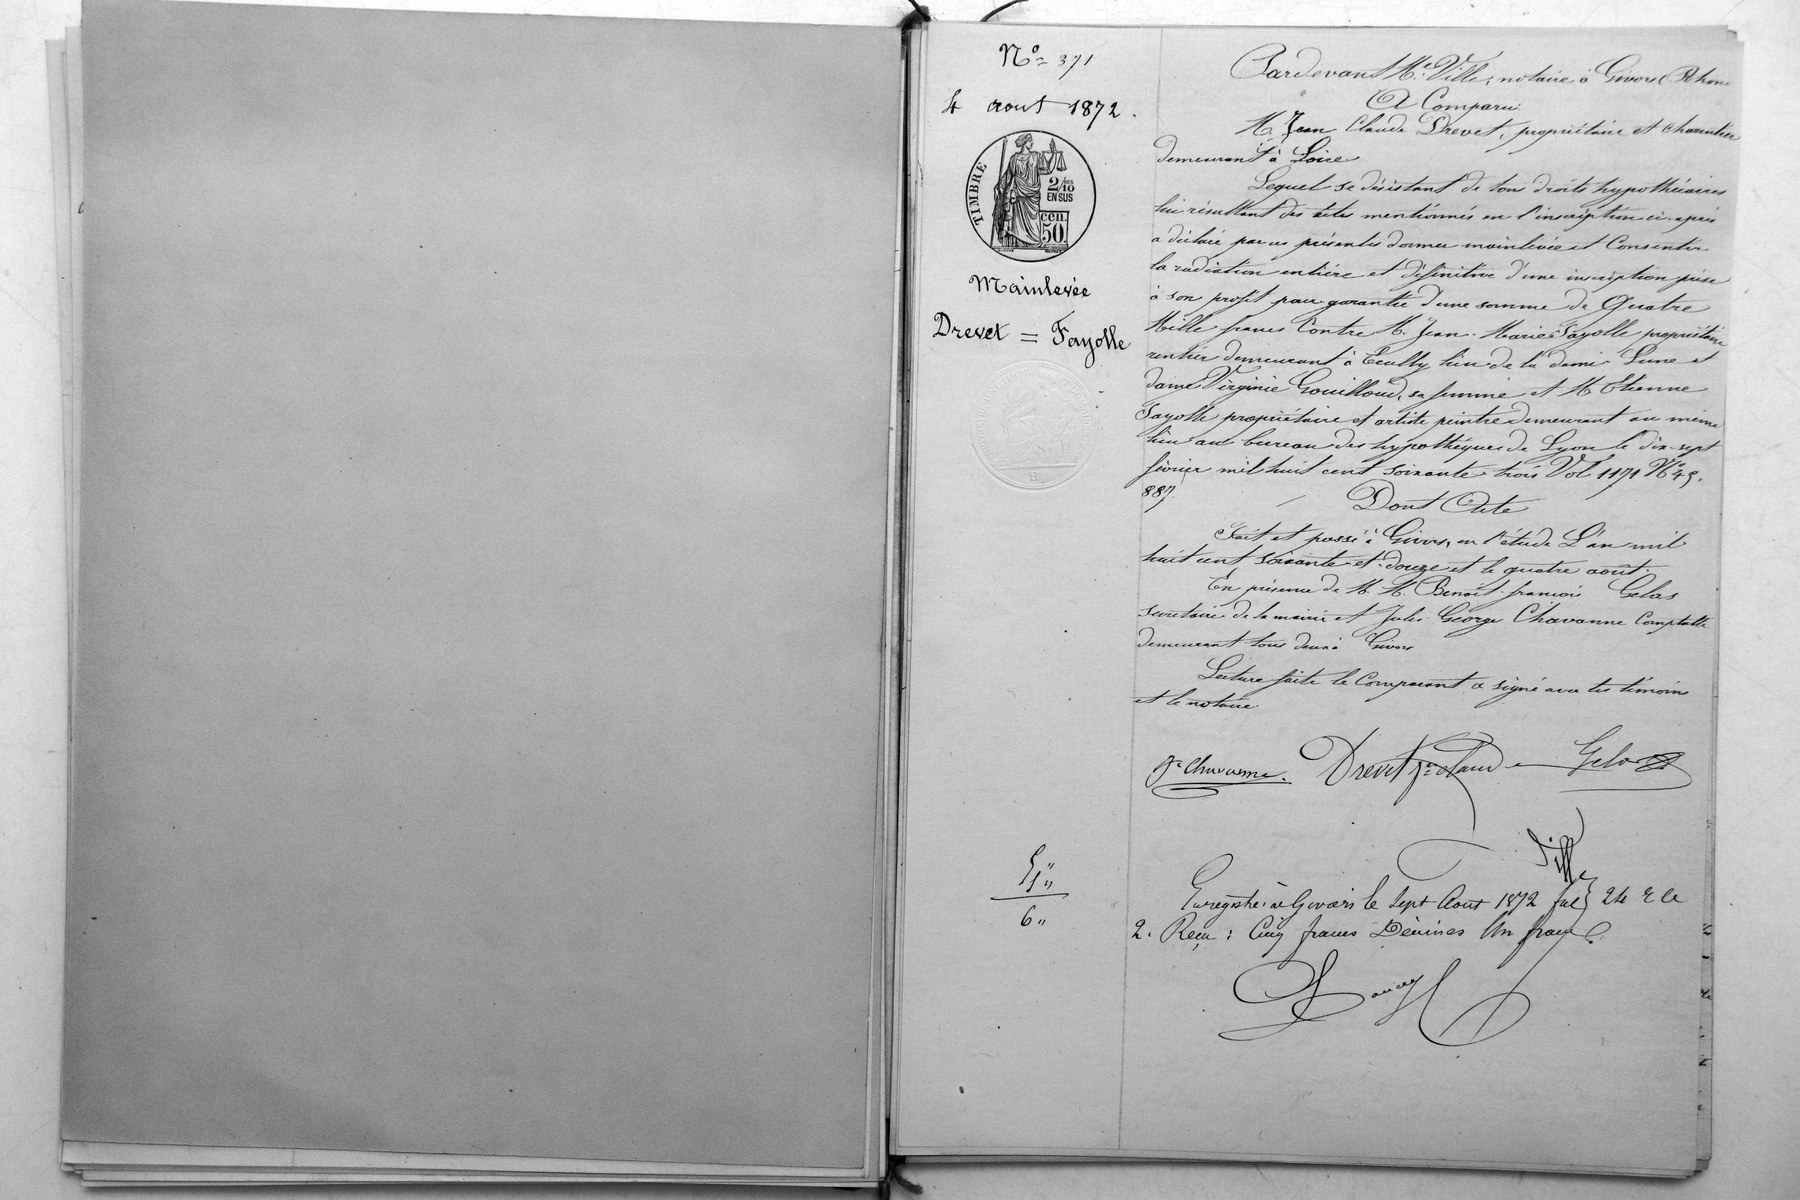 N° 371
4 aout 1872.
TIMBRE
2/10
EN SUS
cen.
50.
Mainlevée
Drevet = Fayolle
Pardevant Me Ville, notaire à Givors (Rhone
A Comparu:
M. Jean Claude Drevet, propriétaire et charcutier
demeurant à Loire
Lequel se désistant de tous droits hypothécaires
lui résultant des actes mentionnés en l'inscription ci-après
a déclaré par ces présentes donner mainlevée et Consentir
la radiation entière et définitive d'une inscription prise
à son profit pour garantie d'une somme de Quatre
Mille francs Contre M. Jean-Marie Fayolle propriétaire
rentier demeurant à Ecully lieu de la demi Lune et
dame Virginie Gouilloud, sa femme et M Etienne
Fayolle propriétaire et artiste peintre demeurant au même
lieu au bureau des hypothèques de Lyon le dix-sept
février mil huit cent soixante-trois Vol 1171 N° 49.
887.
Dont Acte
Fait et passé à Givors, en l'étude L'an mil
huit cent soixante-et-douze et le quatre août.
En présence de M. M. Benoît françois Gelas
secrétaire de la mairie et Jules George Chavanne Comptable
demeurant tous deux à Givors
Lecture faite le Comparant a signé avec les témoins
et le notaire
Jes Chavanne. Drevet Jn Claude Gelas
Ville
5 "
1 "
6 "
Enregistré à Givors le Sept Aout 1872 fol 24 R Ce
2. Reçu : Cinq francs Décimes Un franc